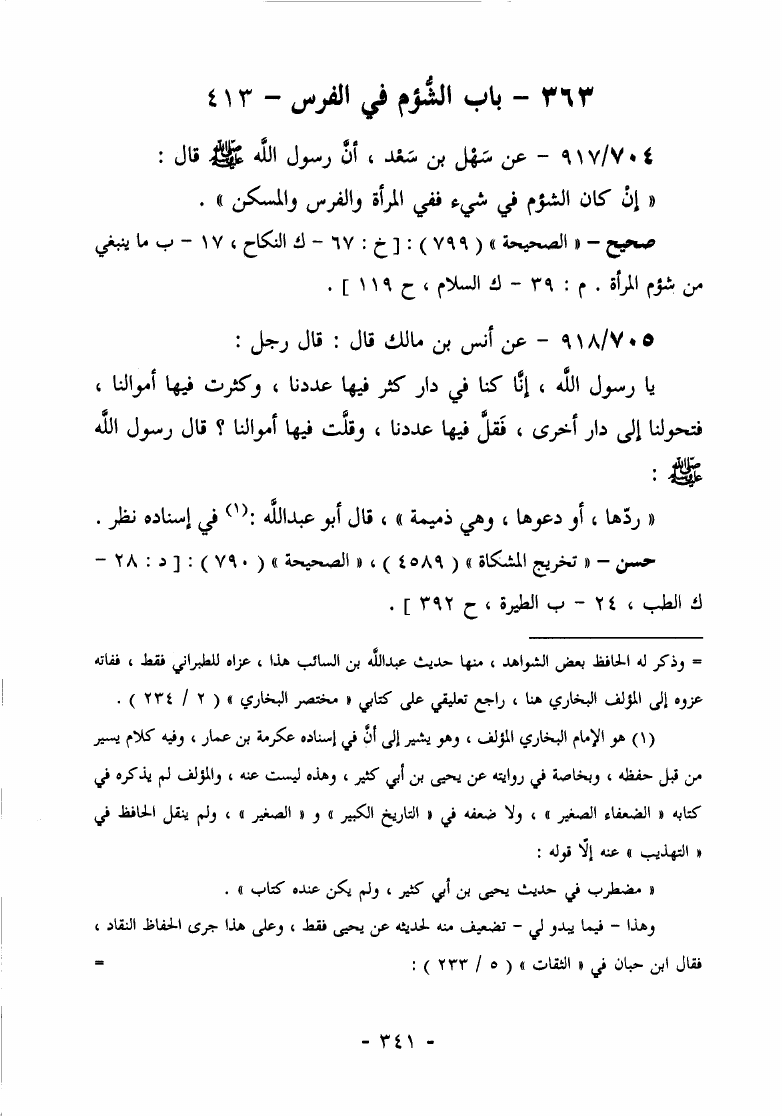 ٣٦٣ - باب الشُّؤم في الفرس - ٤١٣
٩١٧/٧٠٤ - عن سَهْل بن سَعْد ، أنَّ رسول اللَّه ﷺ قال :
« إنْ كان الشؤم في شيء ففي المرأة والفرس والمسكن » .
صحيح - « الصحيحة » ( ٧٩٩ ) : [ خ : ٦٧ - ك النكاح ، ١٧ - ب ما ينبغي
من شؤم المرأة . م : ٣٩ - ك السلام ، ح ١١٩ ] .
٩١٨/٧٠٥ - عن أنس بن مالك قال : قال رجل :
يا رسول اللَّه ، إنَّا كنا في دار كثر فيها عددنا ، وكثرت فيها أموالنا ،
فتحولنا إلى دار أخرى ، فَقلَّ فيها عددنا ، وقلَّت فيها أموالنا ؟ قال رسول اللَّه
ﷺ :
« ردّها ، أو دعوها ، وهي ذميمة » ، قال أبو عبداللَّه :(١) في إسناده نظر .
حسن - « تخريج المشكاة » ( ٤٥٨٩ ) ، « الصحيحة » ( ٧٩٠ ) : [ د : ٢٨ -
ك الطب ، ٢٤ - ب الطيرة ، ح ٣٩٢ ] .
= وذكر له الحافظ بعض الشواهد ، منها حديث عبداللَّه بن السائب هذا ، عزاه للطبراني فقط ، ففاته
عزوه إلى المؤلف البخاري هنا ، راجع تعليقي على كتابي « مختصر البخاري » ( ٢ / ٢٣٤ ) .
(١) هو الإمام البخاري المؤلف ، وهو يشير إلى أنَّ في إسناده عكرمة بن عمار ، وفيه كلام يسير
من قبل حفظه ، وبخاصة في روايته عن يحيى بن أبي كثير ، وهذه ليست عنه ، والمؤلف لم يذكره في
كتابه « الضعفاء الصغير » ، ولا ضعفه في « التاريخ الكبير » و « الصغير » ، ولم ينقل الحافظ في
« التهذيب » عنه إلّا قوله :
« مضطرب في حديث يحيى بن أبي كثير ، ولم يكن عنده كتاب » .
وهذا - فيما يبدو لي - تضعيف منه لحديثه عن يحيى فقط ، وعلى هذا جرى الحفاظ النقاد ،
فقال ابن حبان في « الثقات » ( ٥ / ٢٣٣ ) : =
- ٣٤١ -